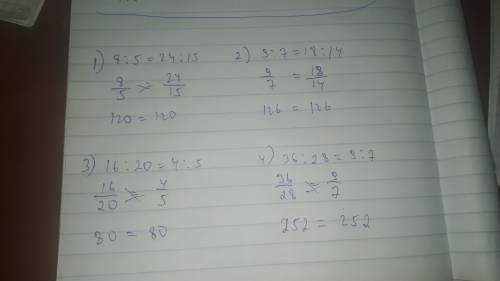 1) 8:5=24:15
8/5 = 24/15
120 = 120
2) 9:7=18:14
9/7 = 18/14
126 = 126
3) 16:20=4:5
16/20 = 4/5
80 = 80
4) 36:28=9:7
36/28 = 9/7
252 = 252